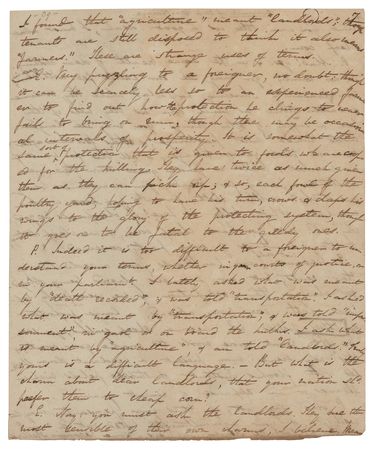 I found that "agriculture" meant "Landlords"; the
tenants are still disposed to think it also means
"farmers." These are strange uses of terms.
E. Very puzzling to a foreigner, no doubt, though
it can be scarcely less so to an experienced farm
er to find out how the protection he clings to never
fails to bring on ruin, though there may be occasion
al intervals of prosperity. It is somewhat the
same sort of protection that is given to fowls who are coop
ed for the killing. They have twice as much given
them as they can pick up; & so, each fowl of the
poultry yard, hoping to have his turn, crows & claps his
wings to the glory of the protecting system, though
it goes on to be fatal to the greedy ones.
P. Indeed it is too difficult to a foreigner to un
derstand your terms, whether in your courts of justice, or
in your parliament. I lately asked what was meant
by "death recorded", & was told "transportation". I asked
what was meant by "transportation", & was told "impri
sonment" in gaol or on board the hulks. I ask what
is meant by "agriculture", & am told "Landlords." Truly
yours is a difficult language. – But what is the
charm about dear Landlords, that your nation shd
prefer them to cheap corn?
E. Nay, you must ask the Landlords. They are the
most sensible of their own charms, I believe. There